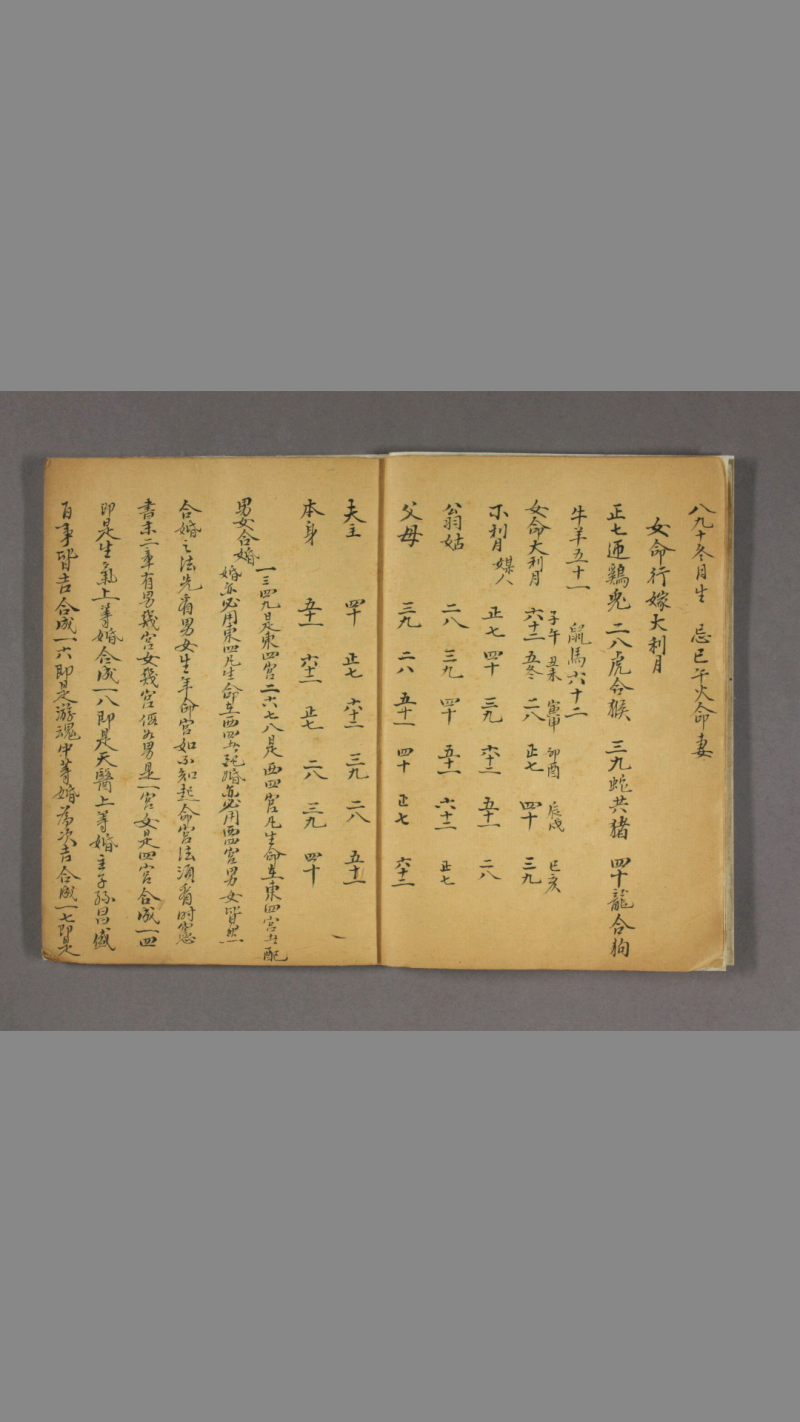 八九十冬月生　忌巳午火命妻
女命行嫁大利月
正七迎鷄兎　二八虎合猴　三九蛇共猪　四十龍合狗
牛羊五十一　鼠馬六十二
子午　丑未　寅申　卯酉　辰戌　巳亥
女命大利月　六十二　五冬　二八　正七　四十　三九
不利月　媒人　正七　四十　三九　六十二　五十一　二八
翁姑　二八　三九　四十　五十一　六十二　正七
父母　三九　二八　五十一　四十　正七　六十二
夫主　四十　正七　六十二　三九　二八　五十一
本身　五十一　六十二　正七　二八　三九　四十
一三四九是東四宮二六七八是西四宮凡生命在東四宮與配
男女合婚　婚亦必用東四凡生命在西四與配婚亦必用西四宮男女皆然
合婚之法先看男女生之年命宮如不知起命宮法須看時憲
書末二章有男幾宮女幾宮假如男是一宮女是四宮合成一四
即是生氣上等婚合成一八即是天醫上等婚主子孫昌盛
百事皆吉合成一六即是游魂中等婚為次吉合成一七即是